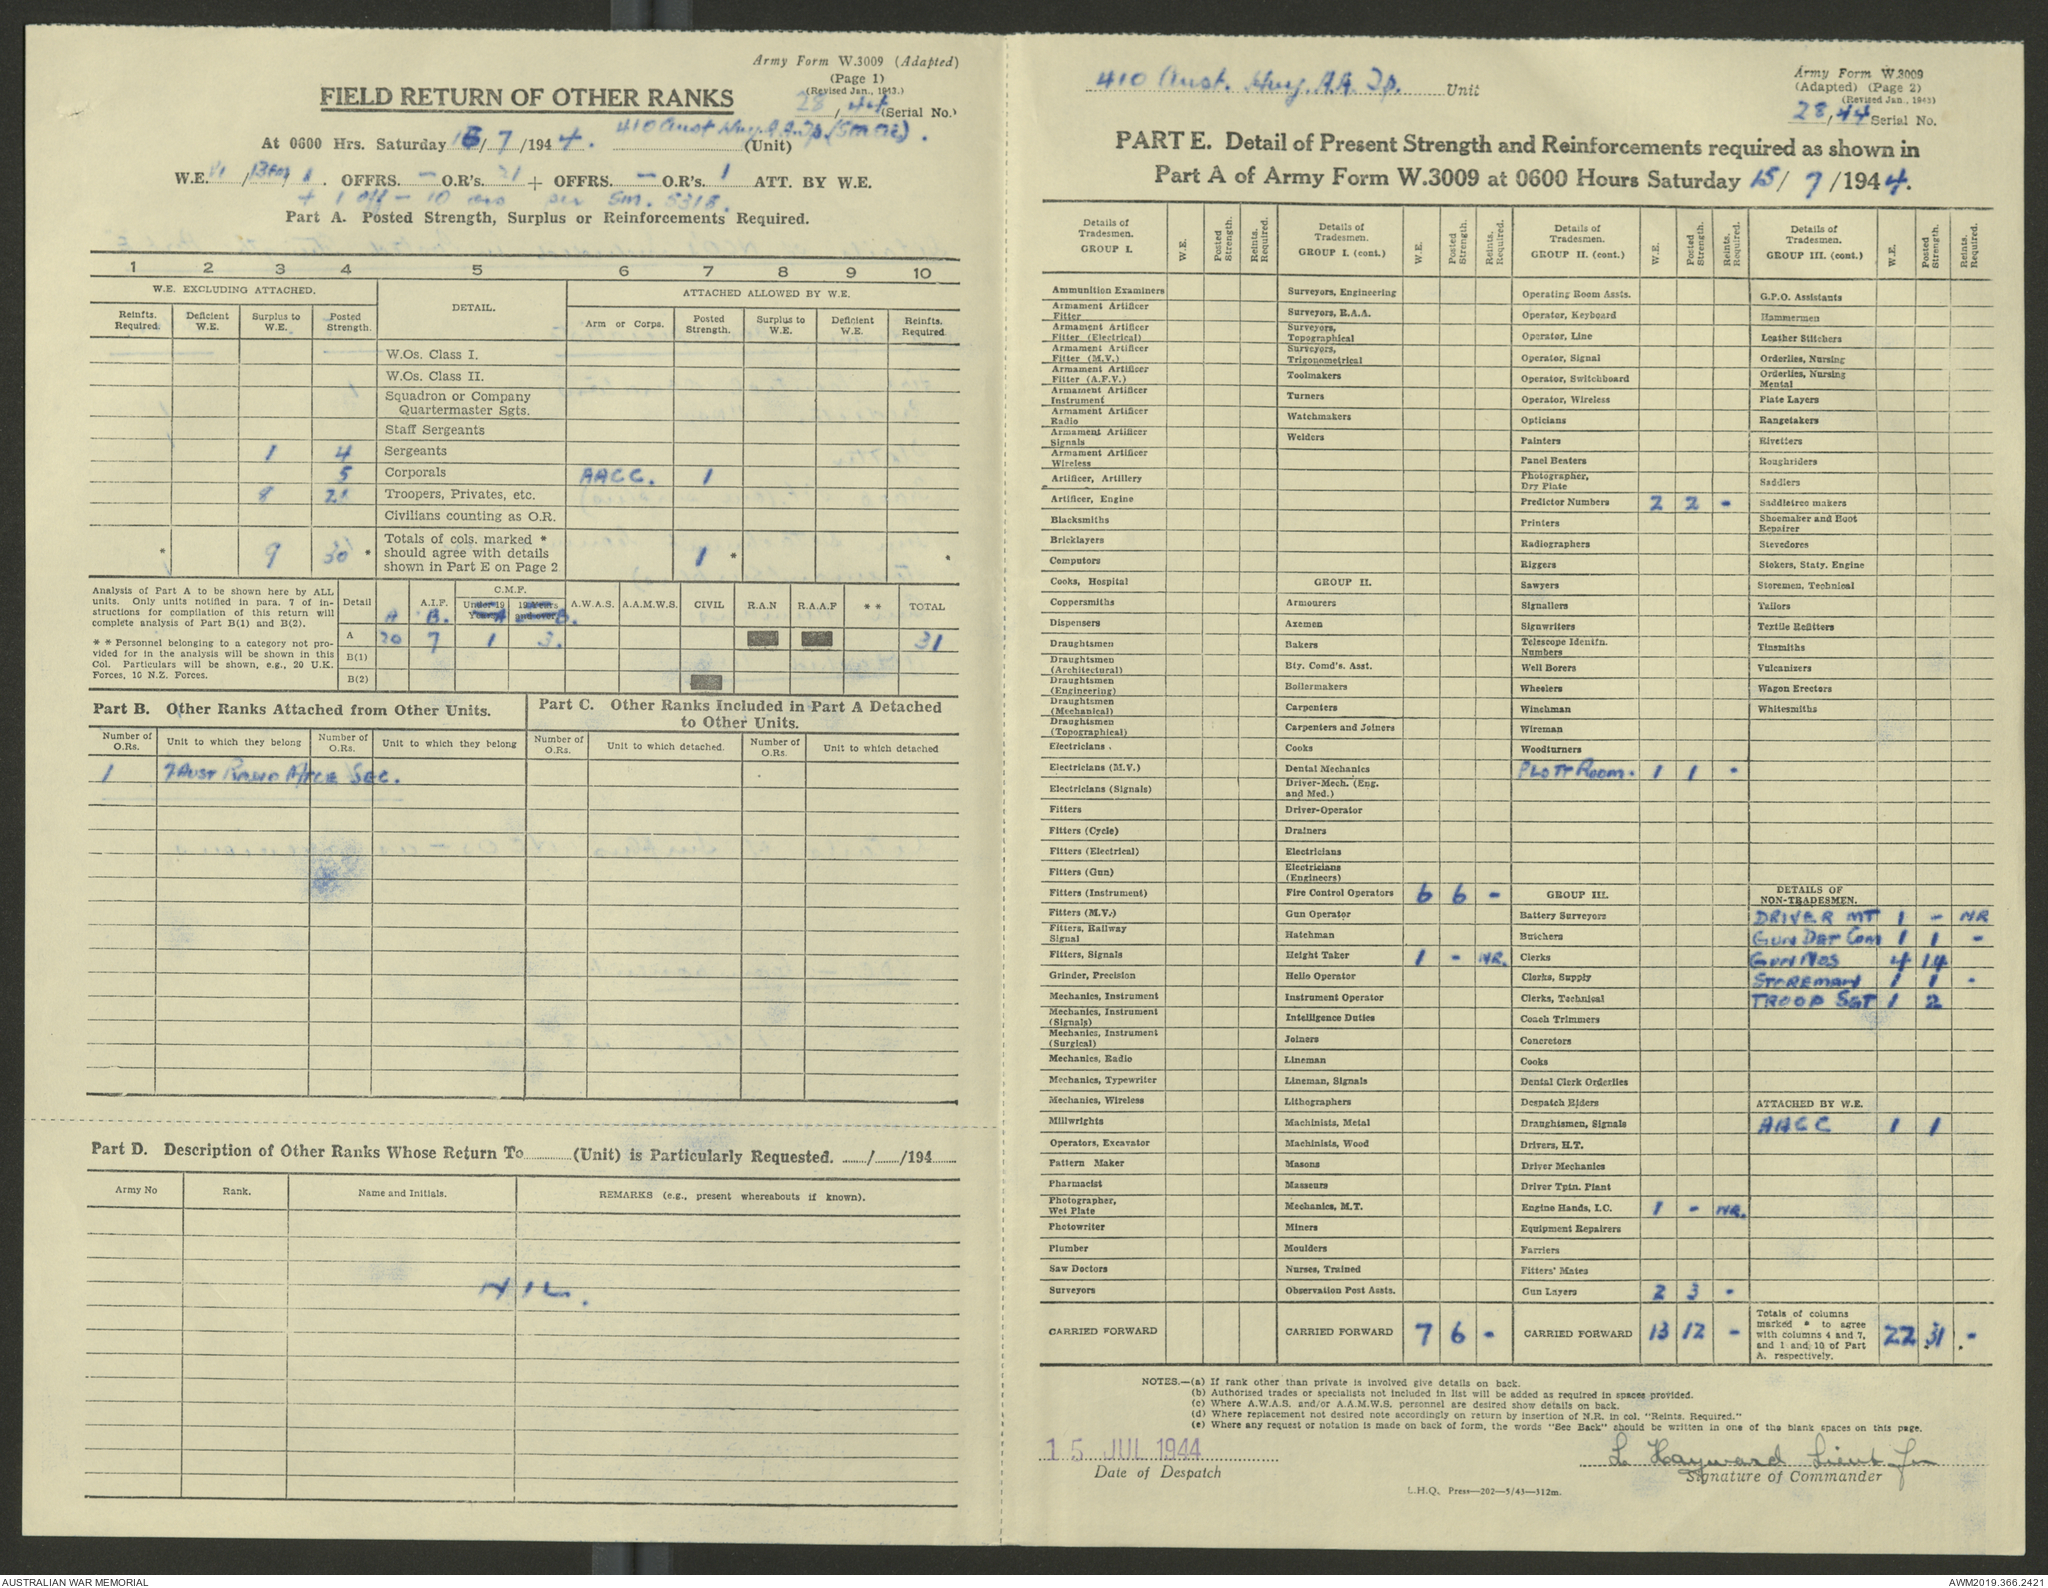 Army Form W.3009 (Adapted)
(Page 1)
(Revised Jan., 1943.)
FIELD RETURN OF OTHER RANKS
28/44 (Serial No.)
At 0600 Hrs. Saturday 15/7/1944. 410 Aust Hvy. A.A. Tp. (Unit)
W.E. / / 1. OFFRS. — O.R's. 21 + OFFRS. — O.R's. 1 ATT. BY W.E.
+ 1 off - 10 ors per Sm. 5318.
Part A. Posted Strength, Surplus or Reinforcements Required.
1 2 3 4 5 6 7 8 9 10
W.E. EXCLUDING ATTACHED. DETAIL. ATTACHED ALLOWED BY W.E.
Reinfts. Required. Deficient W.E. Surplus to W.E. Posted Strength. Arm or Corps. Posted Strength. Surplus to W.E. Deficient W.E. Reinfts. Required
W.Os. Class I.
W.Os. Class II.
Squadron or Company Quartermaster Sgts.
Staff Sergeants
1 4 Sergeants
5 Corporals AACC. 1
8 21 Troopers, Privates, etc.
Civilians counting as O.R.
* 9 30 * Totals of cols. marked * should agree with details shown in Part E on Page 2 1 * *
Analysis of Part A to be shown here by ALL
units. Only units notified in para. 7 of in-
structions for compilation of this return will
complete analysis of Part B(1) and B(2).
* * Personnel belonging to a category not pro-
vided for in the analysis will be shown in this
Col. Particulars will be shown, e.g., 20 U.K.
Forces, 10 N.Z. Forces.
Detail A.I.F. C.M.F. Under 19 Years 19 Years and over A.W.A.S. A.A.M.W.S. CIVIL R.A.N R.A.A.F * * TOTAL
A B. A B.
A 20 7 1 3. 31
B(1)
B(2)
Part B. Other Ranks Attached from Other Units.
Number of O.Rs. Unit to which they belong Number of O.Rs. Unit to which they belong
1 7 Aust Radio Mtce Sec.
Part C. Other Ranks Included in Part A Detached to Other Units.
Number of O.Rs. Unit to which detached. Number of O.Rs. Unit to which detached
Part D. Description of Other Ranks Whose Return To (Unit) is Particularly Requested. / /194
Army No Rank. Name and Initials. REMARKS (e.g., present whereabouts if known).
NIL.
410 Aust. Hvy. A.A. Tp. Unit
Army Form W.3009
(Adapted) (Page 2)
(Revised Jan., 1943)
28/44 Serial No.
PART E. Detail of Present Strength and Reinforcements required as shown in
Part A of Army Form W.3009 at 0600 Hours Saturday 15/7/1944.
Details of Tradesmen. GROUP I. W.E. Posted Strength. Reints. Required.
Ammunition Examiners
Armament Artificer Fitter
Armament Artificer Fitter (Electrical)
Armament Artificer Fitter (M.V.)
Armament Artificer Fitter (A.F.V.)
Armament Artificer Instrument
Armament Artificer Radio
Armament Artificer Signals
Armament Artificer Wireless
Artificer, Artillery
Artificer, Engine
Blacksmiths
Bricklayers
Computors
Cooks, Hospital
Coppersmiths
Dispensers
Draughtsmen
Draughtsmen (Architectural)
Draughtsmen (Engineering)
Draughtsmen (Mechanical)
Draughtsmen (Topographical)
Electricians
Electricians (M.V.)
Electricians (Signals)
Fitters
Fitters (Cycle)
Fitters (Electrical)
Fitters (Gun)
Fitters (Instrument)
Fitters (M.V.)
Fitters, Railway Signal
Fitters, Signals
Grinder, Precision
Mechanics, Instrument
Mechanics, Instrument (Signals)
Mechanics, Instrument (Surgical)
Mechanics, Radio
Mechanics, Typewriter
Mechanics, Wireless
Millwrights
Operators, Excavator
Pattern Maker
Pharmacist
Photographer, Wet Plate
Photowriter
Plumber
Saw Doctors
Surveyors
CARRIED FORWARD
Details of Tradesmen. GROUP I. (cont.) W.E. Posted Strength. Reints. Required.
Surveyors, Engineering
Surveyors, R.A.A.
Surveyors, Topographical
Surveyors, Trigonometrical
Toolmakers
Turners
Watchmakers
Welders
GROUP II.
Armourers
Axemen
Bakers
Bty. Comd's. Asst.
Boilermakers
Carpenters
Carpenters and Joiners
Cooks
Dental Mechanics
Driver-Mech. (Eng. and Med.)
Driver-Operator
Drainers
Electricians
Electricians (Engineers)
Fire Control Operators 6 6 -
Gun Operator
Hatchman
Height Taker 1 - NR.
Hello Operator
Instrument Operator
Intelligence Duties
Joiners
Lineman
Lineman, Signals
Lithographers
Machinists, Metal
Machinists, Wood
Masons
Masseurs
Mechanics, M.T.
Miners
Moulders
Nurses, Trained
Observation Post Assts.
CARRIED FORWARD 7 6 -
Details of Tradesmen. GROUP II. (cont.) W.E. Posted Strength. Reints. Required.
Operating Room Assts.
Operator, Keyboard
Operator, Line
Operator, Signal
Operator, Switchboard
Operator, Wireless
Opticians
Painters
Panel Beaters
Photographer, Dry Plate
Predictor Numbers 2 2 -
Printers
Radiographers
Riggers
Sawyers
Signallers
Signwriters
Telescope Identfn. Numbers
Well Borers
Wheelers
Winchman
Wireman
Woodturners
PLOTT ROOM. 1 1 -
GROUP III.
Battery Surveyors
Butchers
Clerks
Clerks, Supply
Clerks, Technical
Coach Trimmers
Concretors
Cooks
Dental Clerk Orderlies
Despatch Riders
Draughtsmen, Signals
Drivers, H.T.
Driver Mechanics
Driver Tptn. Plant
Engine Hands, I.C. 1 - NR.
Equipment Repairers
Farriers
Fitters' Mates
Gun Layers 2 3 -
CARRIED FORWARD 13 12 -
Details of Tradesmen. GROUP III. (cont.) W.E. Posted Strength. Reints. Required.
G.P.O. Assistants
Hammermen
Leather Stitchers
Orderlies, Nursing
Orderlies, Nursing Mental
Plate Layers
Rangetakers
Rivetters
Roughriders
Saddlers
Saddletree makers
Shoemaker and Boot Repairer
Stevedores
Stokers, Staty. Engine
Storemen, Technical
Tailors
Textile Refitters
Tinsmiths
Vulcanizers
Wagon Erectors
Whitesmiths
DETAILS OF NON-TRADESMEN.
DRIVER MT 1 - NR
GUN DET COM 1 1 -
GUN NOS 4 14
STOREMAN 1 1 -
TROOP SGT 1 2
ATTACHED BY W.E.
AACC 1 1
Totals of columns marked * to agree with columns 4 and 7, and 1 and 10 of Part A, respectively. 22 31 -
NOTES.—(a) If rank other than private is involved give details on back.
(b) Authorised trades or specialists not included in list will be added as required in spaces provided.
(c) Where A.W.A.S. and/or A.A.M.W.S. personnel are desired show details on back.
(d) Where replacement not desired note accordingly on return by insertion of N.R. in col. "Reints. Required."
(e) Where any request or notation is made on back of form, the words "See Back" should be written in one of the blank spaces on this page.
15 JUL 1944
Date of Despatch
L Hayward Lieut for
Signature of Commander
L.H.Q. Press—202—5/43—312m.
AUSTRALIAN WAR MEMORIAL
AWM2019.366.2421